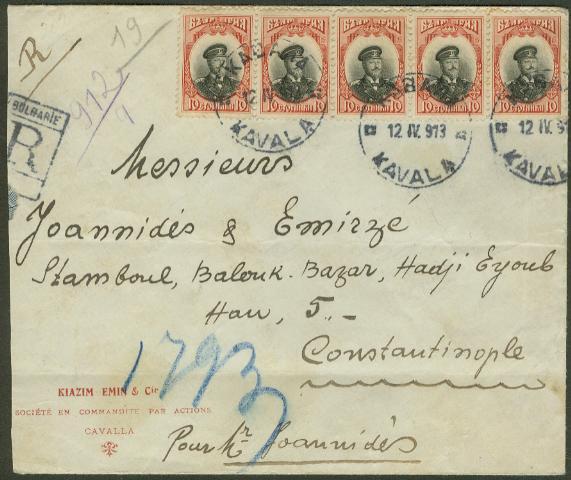 R
19
912
9
BOLGARIE
R
БЪЛГАРИЯ БЪЛГАРИЯ БЪЛГАРИЯ БЪЛГАРИЯ БЪЛГАРИЯ
10 СТОТИНКИ 10 10 СТОТИНКИ 10 10 СТОТИНКИ 10 10 СТОТИНКИ 10 10 СТОТИНКИ 10
12 IV. 913
KAVALA KAVALA KAVALA
Messieurs
Joannidés & Emirzé
Stamboul, Balouk-Bazar, Hadji Eyoub
Han, 5.-
Constantinople
1793
KIAZIM EMIN & Cie
SOCIÉTÉ EN COMMANDITE PAR ACTIONS
CAVALLA
Pour Mr Joannidés